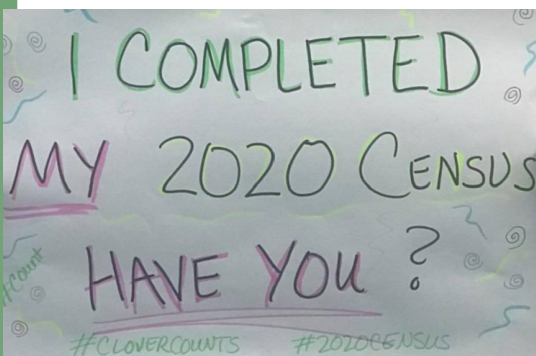 I COMPLETED
MY 2020 CENSUS
HAVE YOU?
#Count
#CLOVERCOUNTS #2020CENSUS